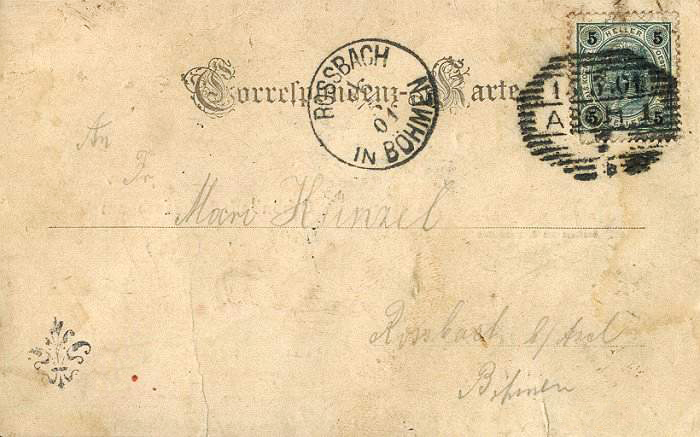 5 HELLER 5
5 5
Correspondenz-Karte
ROSSBACH
01
IN BÖHMEN
An
Fr
Mari Künzel
Rossbach b/Asch
Böhmen